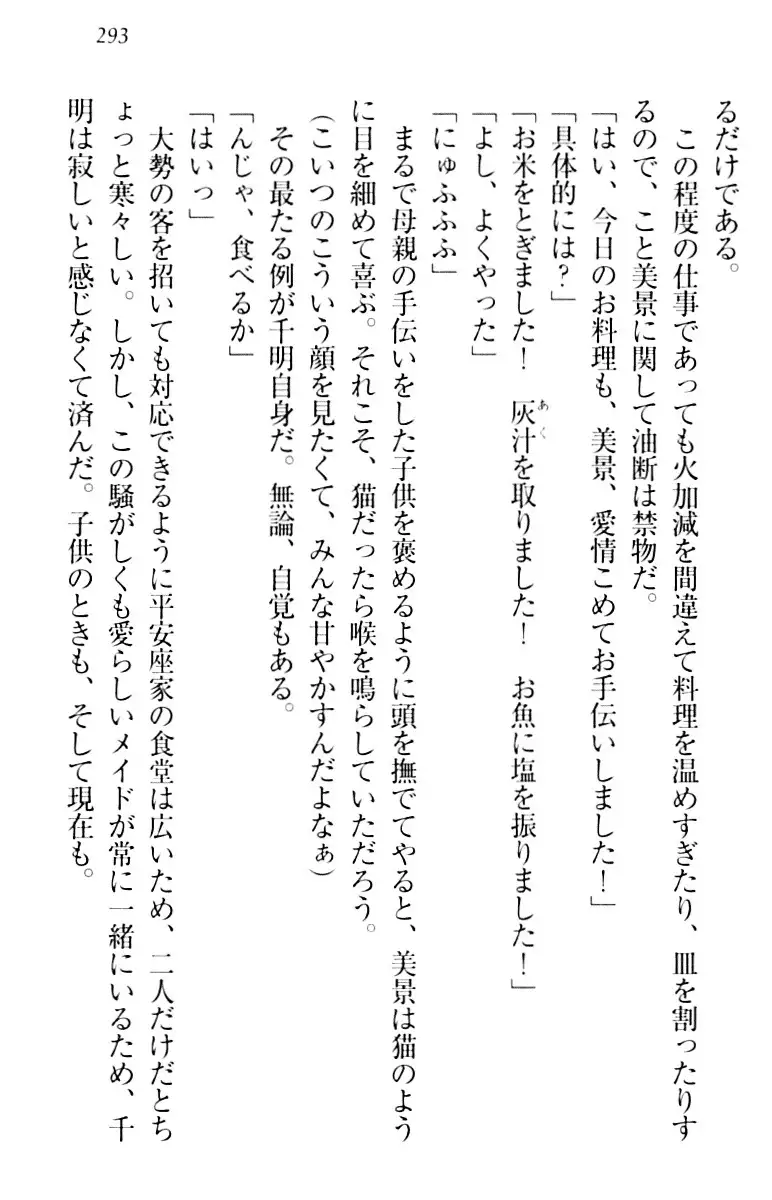 293
るだけである。
　この程度の仕事であっても火加減を間違えて料理を温めすぎたり、皿を割ったりす
るので、こと美景に関して油断は禁物だ。
「はい、今日のお料理も、美景、愛情こめてお手伝いしました！」
「具体的には？」
「お米をとぎました！　灰汁を取りました！　お魚に塩を振りました！」
あく
「よし、よくやった」
「にゅふふふ」
　まるで母親の手伝いをした子供を褒めるように頭を撫でてやると、美景は猫のよう
に目を細めて喜ぶ。それこそ、猫だったら喉を鳴らしていただろう。
（こいつのこういう顔を見たくて、みんな甘やかすんだよなぁ）
　その最たる例が千明自身だ。無論、自覚もある。
「んじゃ、食べるか」
「はいっ」
　大勢の客を招いても対応できるように平安座家の食堂は広いため、二人だけだとち
ょっと寒々しい。しかし、この騒がしくも愛らしいメイドが常に一緒にいるため、千
明は寂しいと感じなくて済んだ。子供のときも、そして現在も。